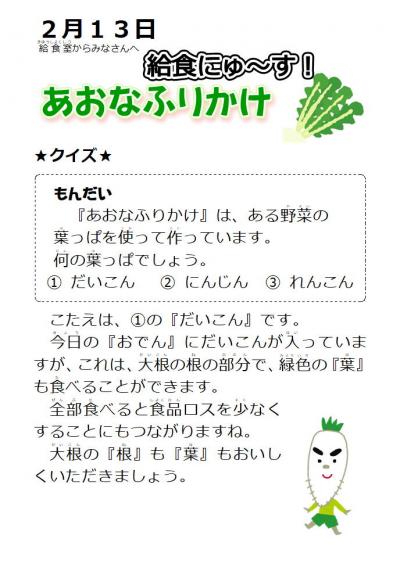 ２月１３日
給食室からみなさんへ
給食にゅ～す！
あおなふりかけ
★クイズ★
もんだい
『あおなふりかけ』は、ある野菜の
葉っぱを使って作っています。
何の葉っぱでしょう。
① だいこん　② にんじん　③ れんこん
こたえは、①の『だいこん』です。
今日の『おでん』にだいこんが入っていま
すが、これは、大根の根の部分で、緑色の『葉』
も食べることができます。
全部食べると食品ロスを少なく
することにもつながりますね。
大根の『根』も『葉』もおいし
くいただきましょう。